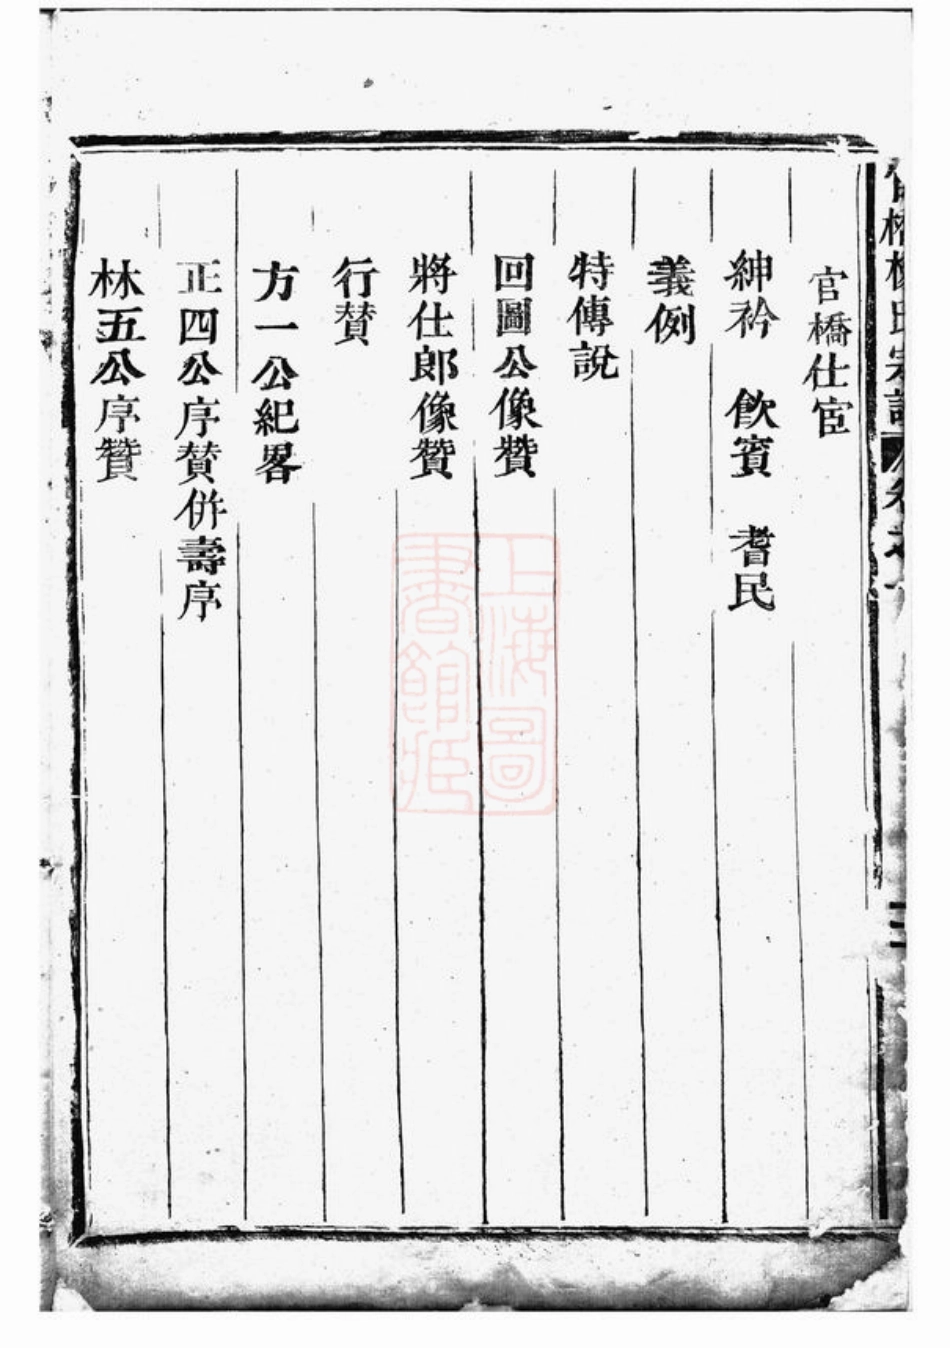 官橋仕宦
紳衿　飲賓　耆民
義例
特傳說
回圖公像贊
將仕郎像贊
行贊
方一公紀畧
正四公序贊併壽序
林五公序贊
上海圖書館藏